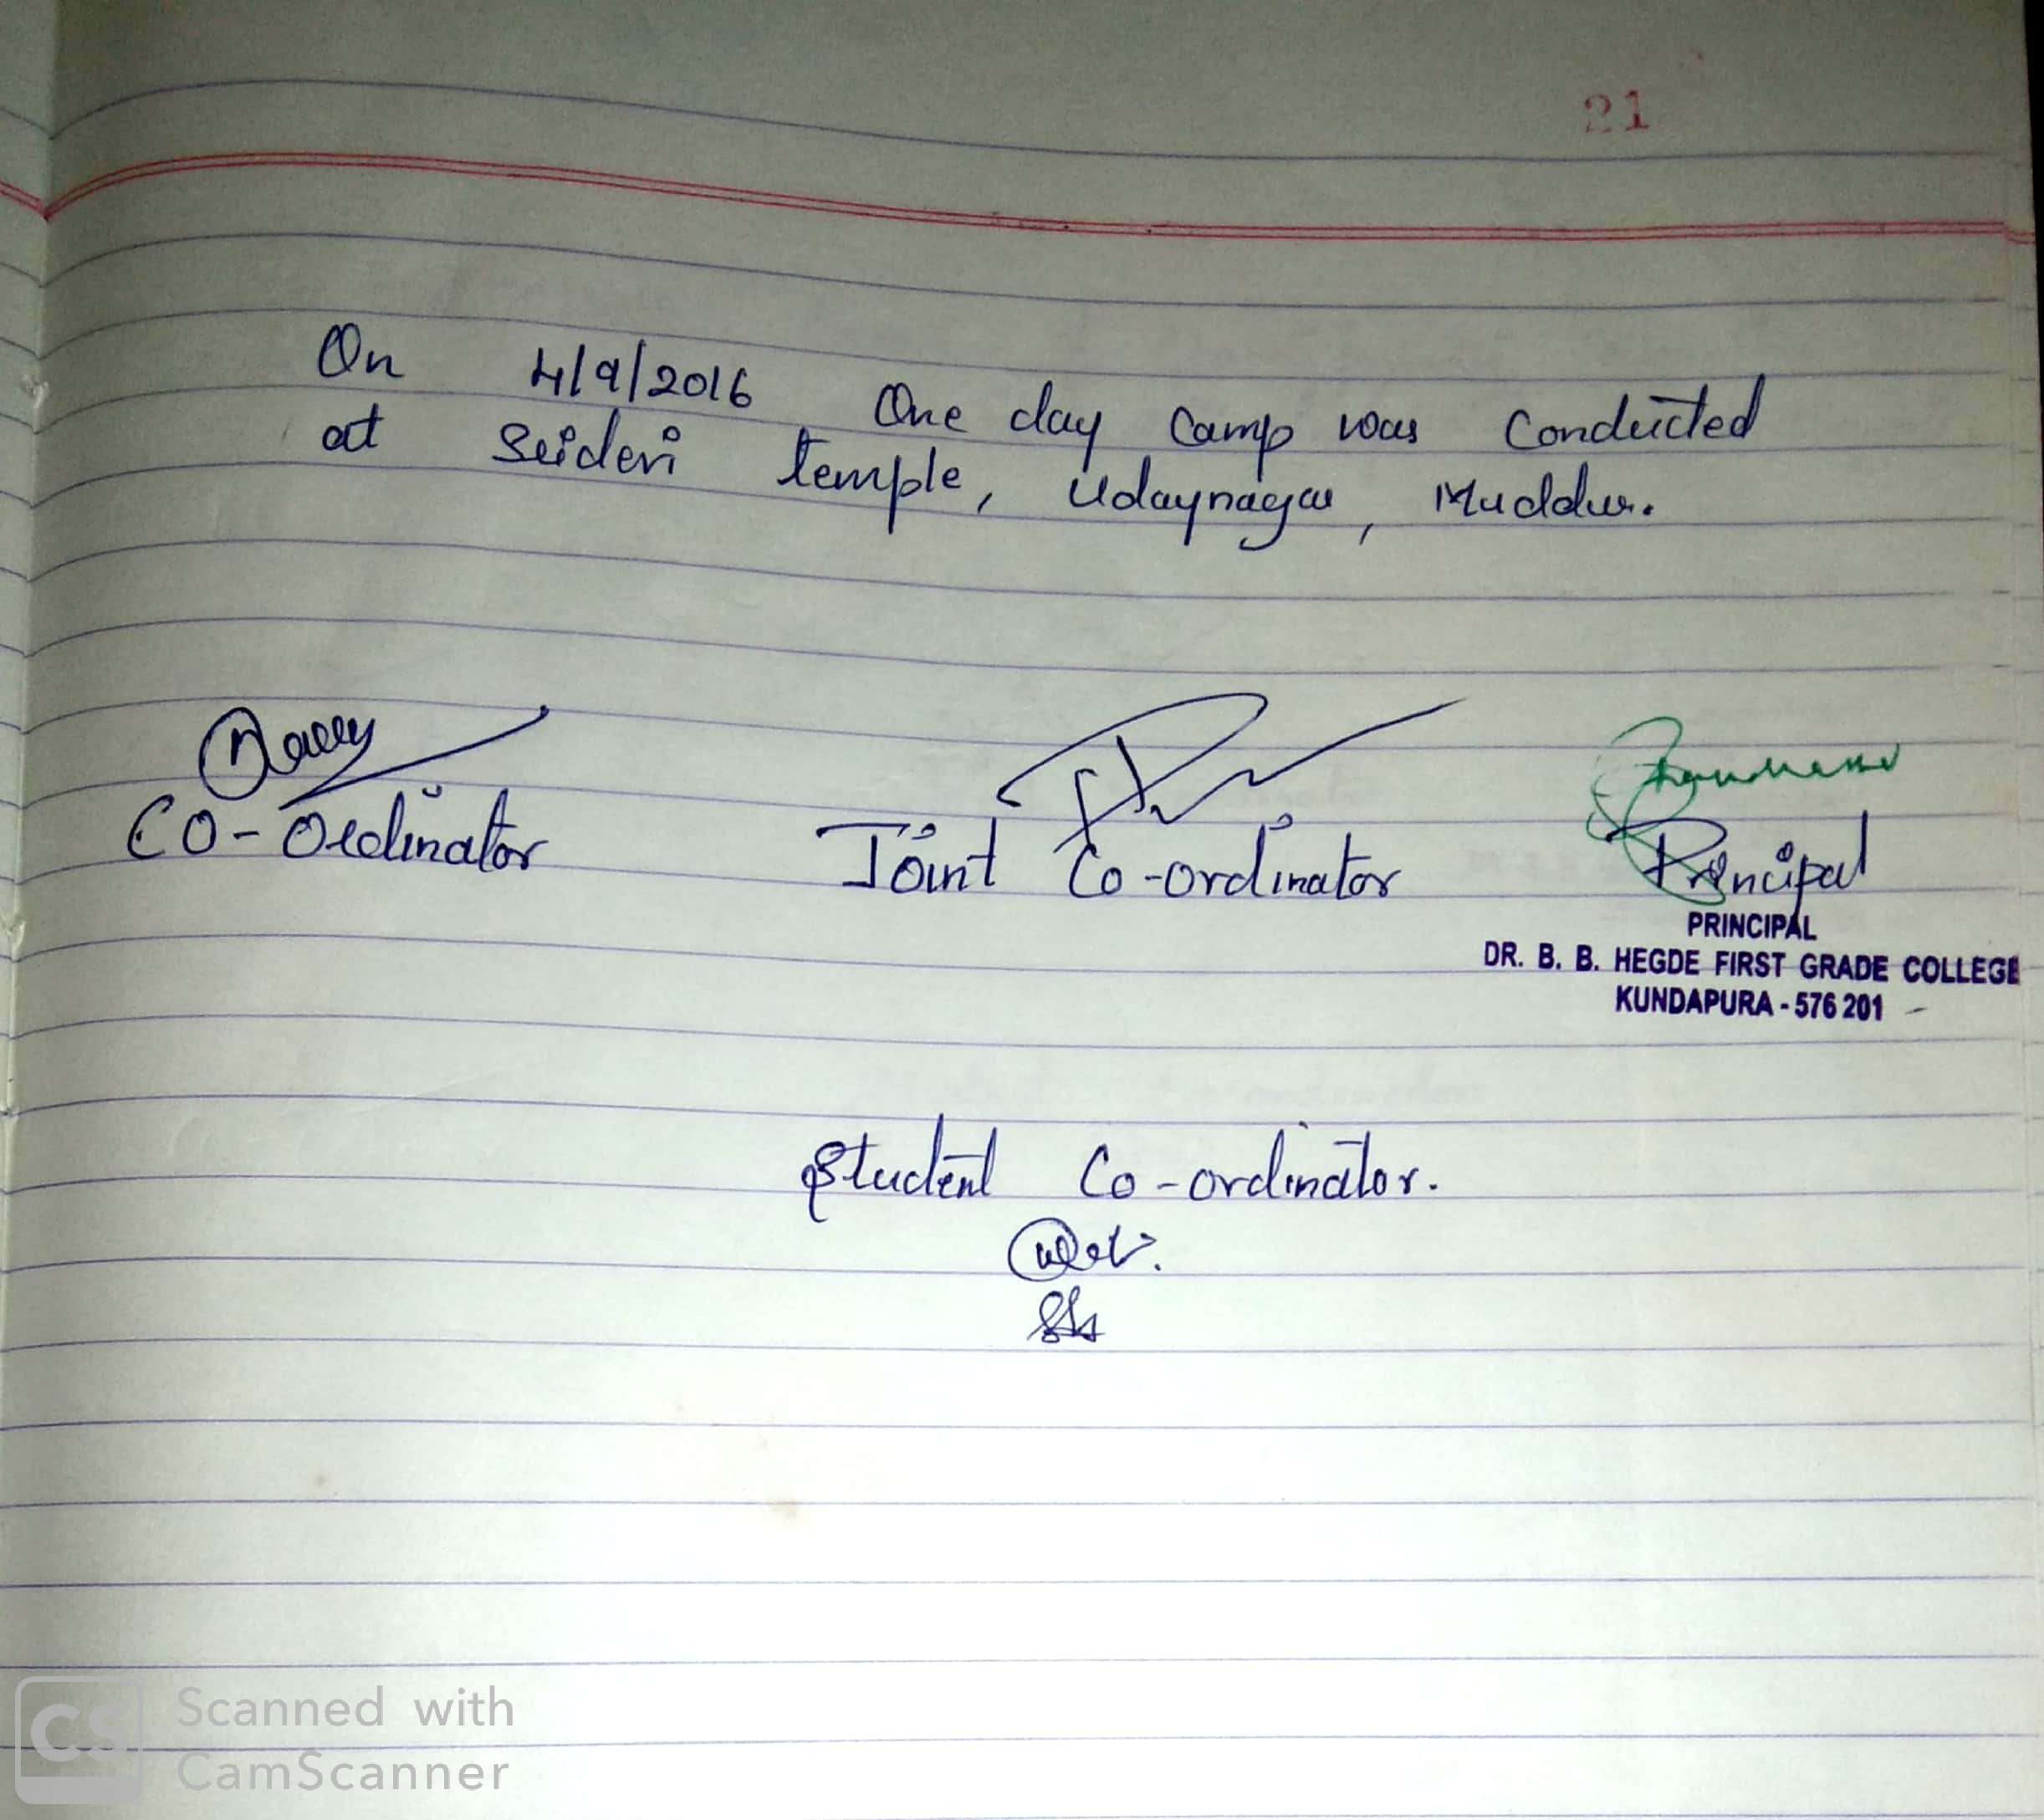 21
On 4/9/2016 One day Camp was Conducted
at Sridevi temple, Udaynagar, Muddur.
Co-Ordinator Joint Co-ordinator Principal
PRINCIPAL
DR. B. B. HEGDE FIRST GRADE COLLEGE
KUNDAPURA - 576 201
Student Co-ordinator.
CS Scanned with
CamScanner